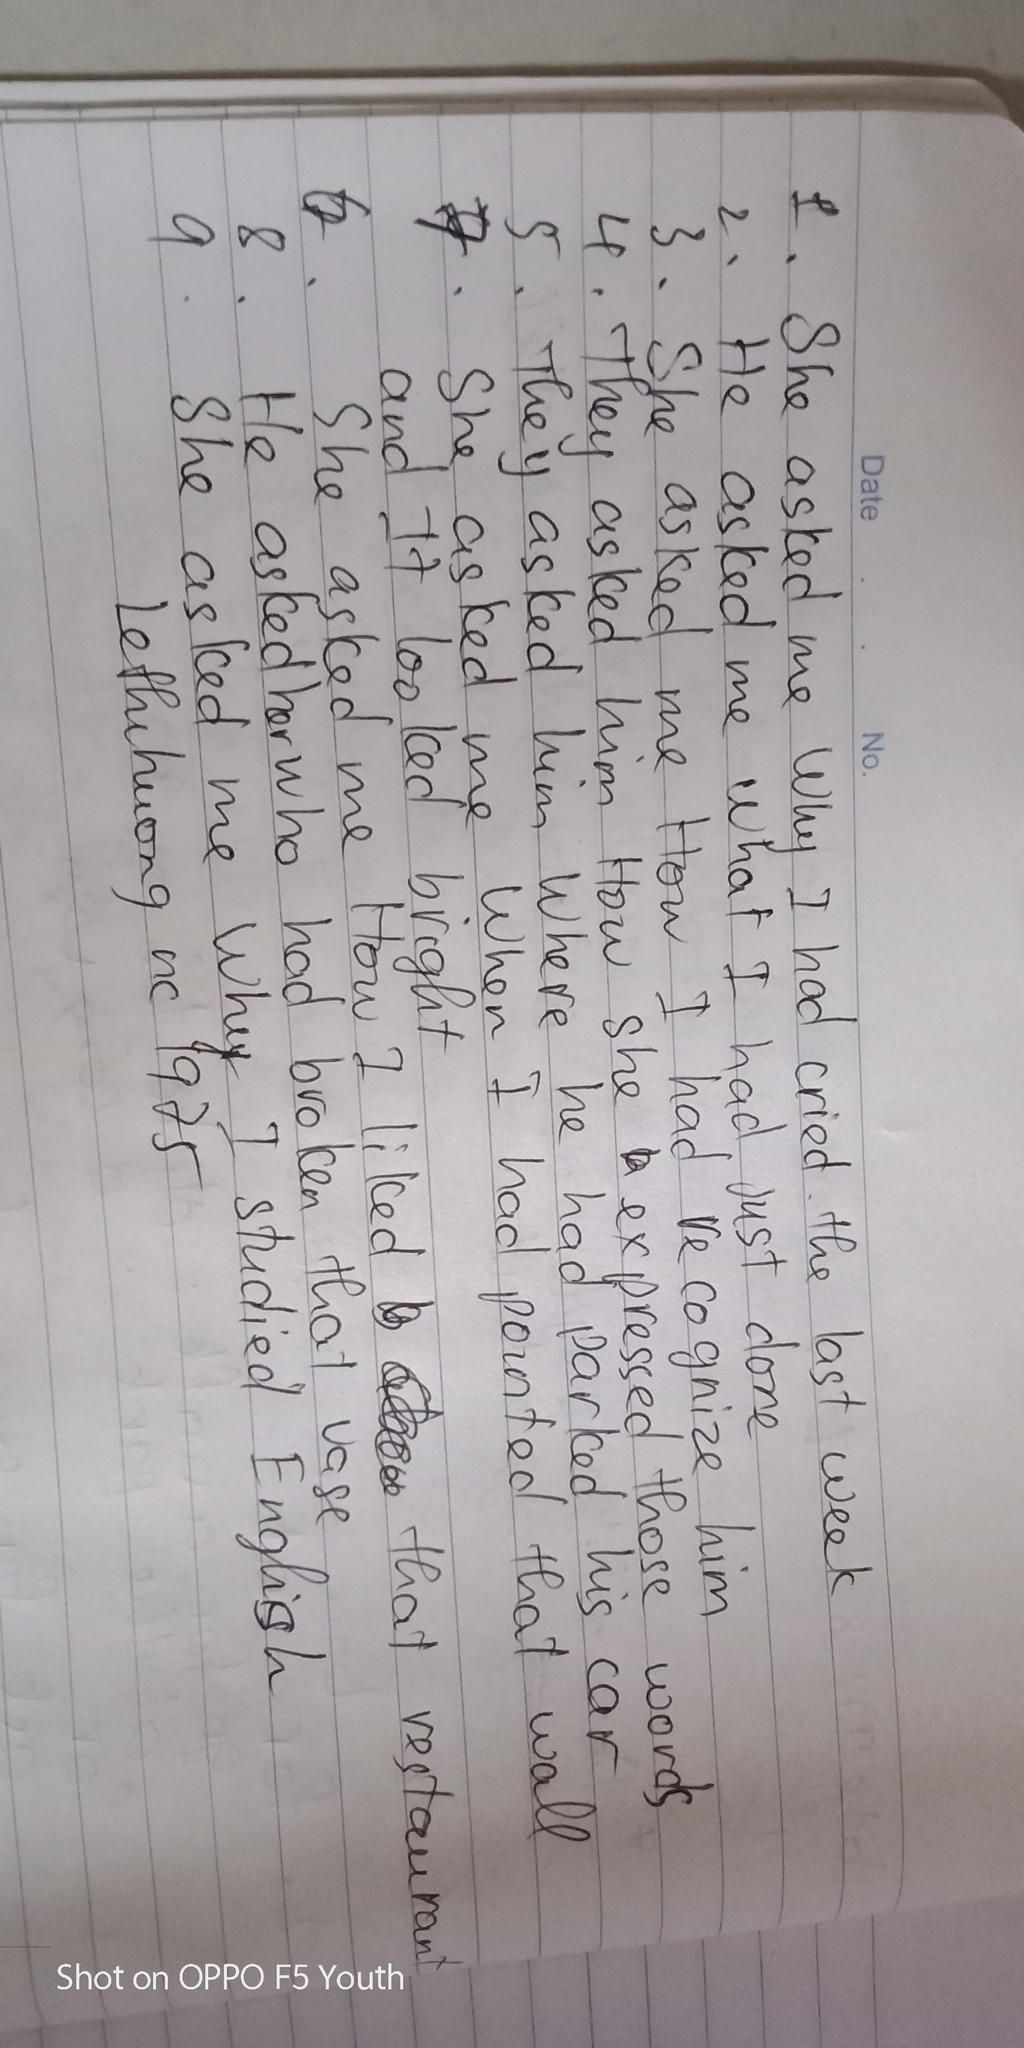 Date . . No.
1. She asked me Why I had cried the last week
2. He asked me what I had just done
3. She asked me How I had recognize him
4. They asked him How she expressed those words
5. They asked him Where he had parked his car
7. She asked me When I had pointed that wall
and It looked bright
6. She asked me How I liked that restaurant
8. He asked her who had broken that vase
9. She asked me Why I studied English
Lethuhuong nc 1975
Shot on OPPO F5 Youth